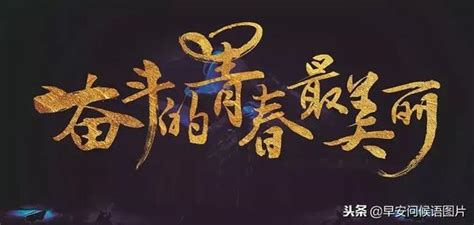 奋斗的青春最美丽
头条@早安问候语图片